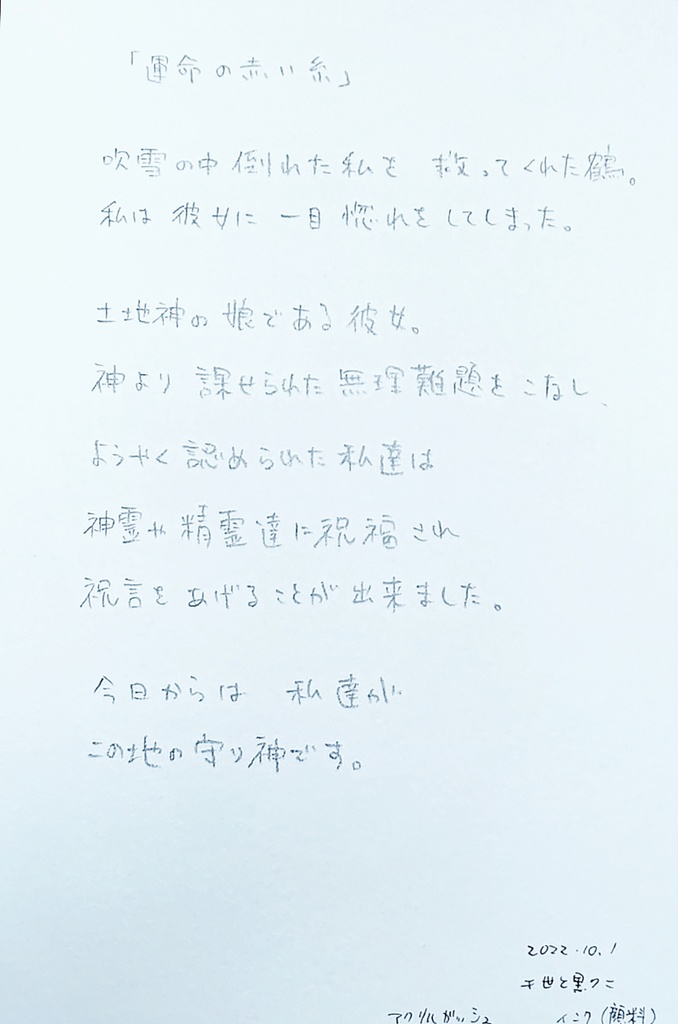 「運命の赤い糸」
吹雪の中倒れた私を 救ってくれた鶴。
私は彼女に一目惚れをしてしまった。
土地神の娘である彼女。
神より課せられた無理難題をこなし、
ようやく認められた私達は
神霊や精霊達に祝福され
祝言をあげることが出来ました。
今日からは 私達が
この地の守り神です。
2022.10.1
アクリルガッシュ インク(顔料)